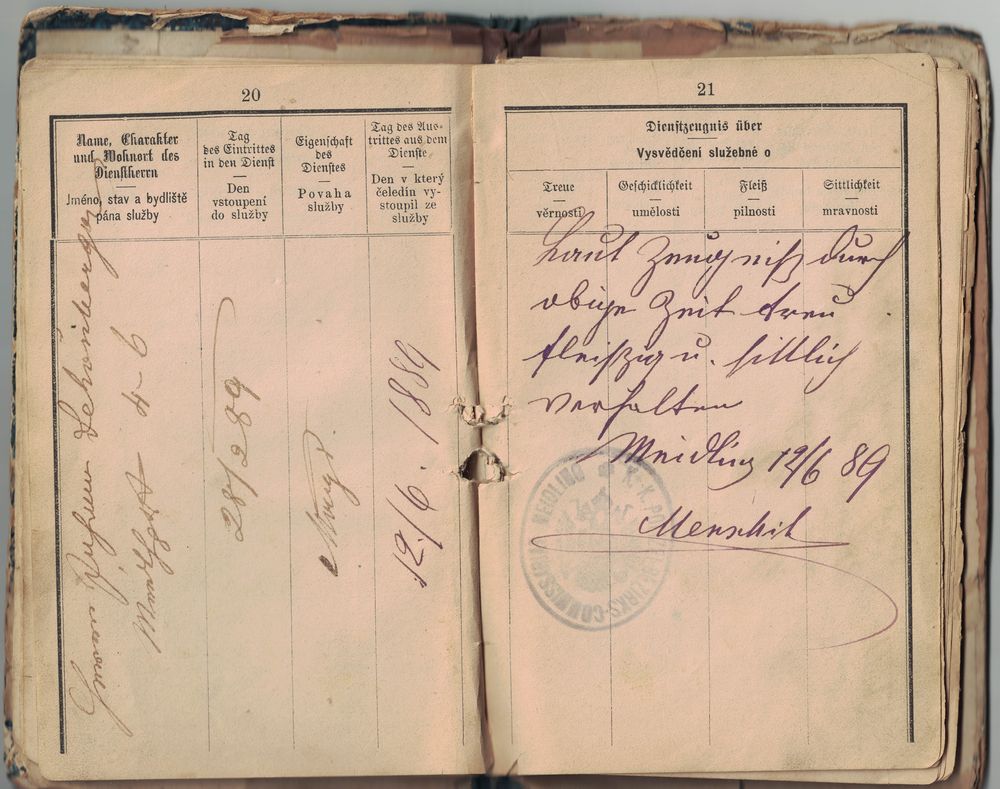 20
Name, Charakter
und Wohnort des
Dienstherrn
Jméno, stav a bydliště
pána služby
Tag
des Eintrittes
in den Dienst
Den
vstoupení
do služby
Eigenschaft
des
Dienstes
Povaha
služby
Tag des Aus-
trittes aus dem
Dienste
Den v který
čeledín vy-
stoupil ze
služby
Schönberger
28/2 89
Magd
12/6. 1889
21
Dienstzeugnis über
Vysvědčení služebné o
Treue
věrnosti
Geschicklichkeit
umělosti
Fleiß
pilnosti
Sittlichkeit
mravnosti
Laut Zeugniß durch
obige Zeit treu
fleißig u. sittlich
verhalten
Meidling 12/6 89
MEIDLING K. K. BEZIRKS-COMMISSARIAT